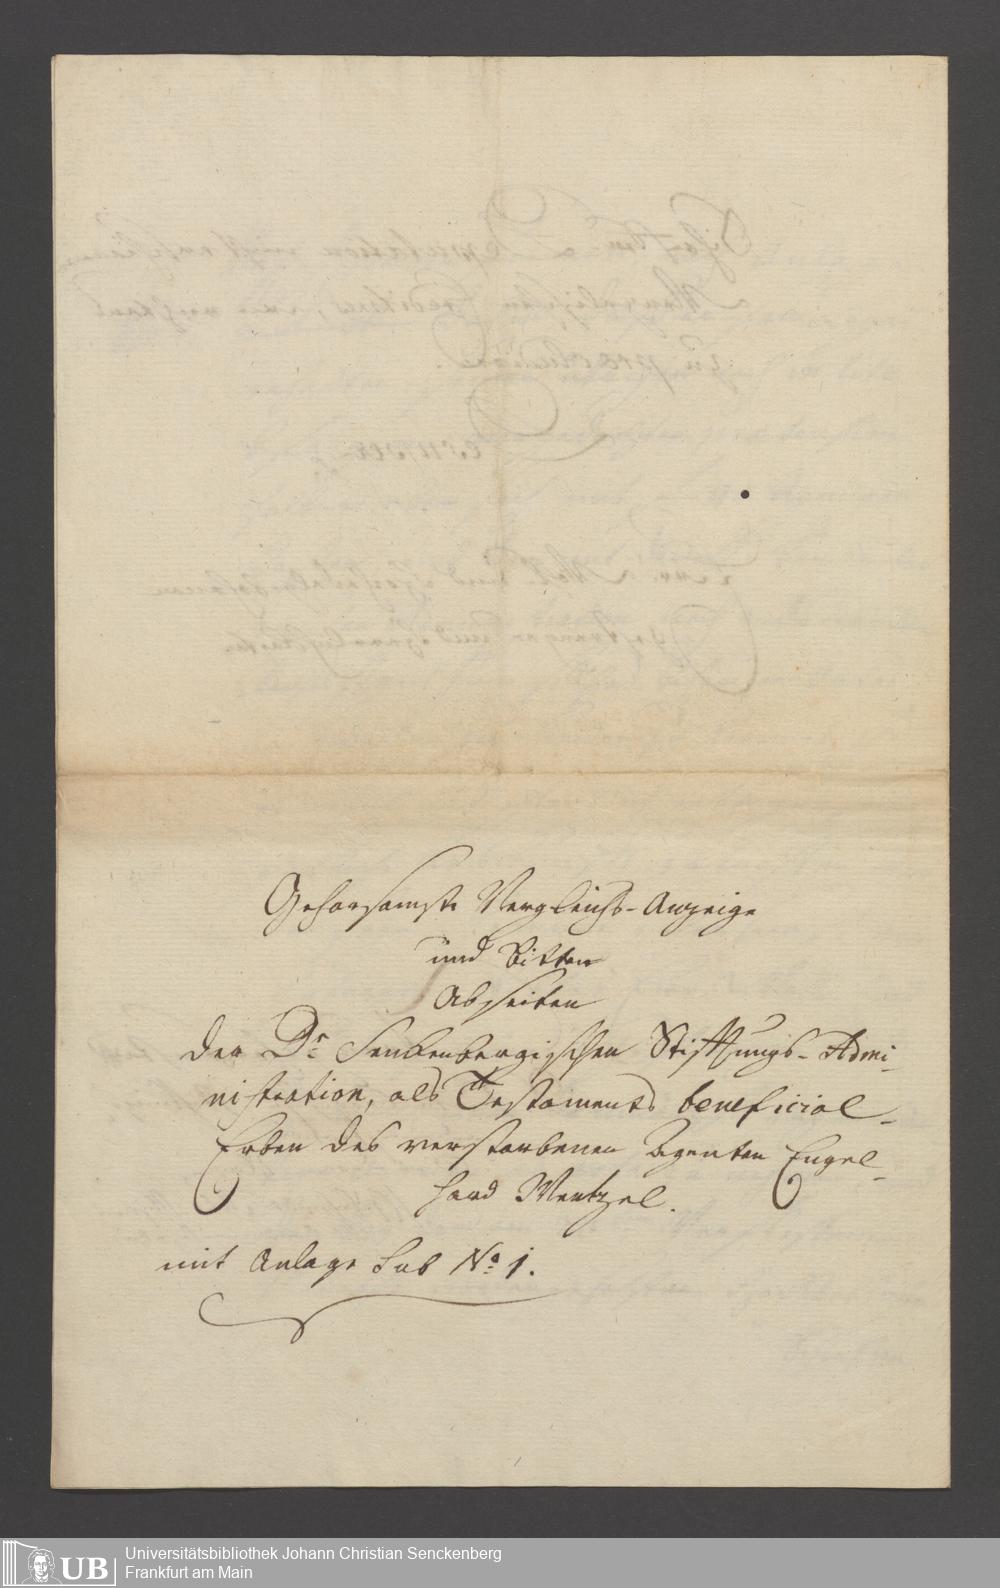 Gehorsamste Vergleichs-Anzeige
und Bitten
Abseiten
der Dr. Senkenbergischen Stifftungs-Admi-
nistration, als Testaments beneficial-
Erben des verstorbenen Agenten Engel-
hard Mentzel.
mit Anlage Sub No. 1.
UB
Universitätsbibliothek Johann Christian Senckenberg
Frankfurt am Main